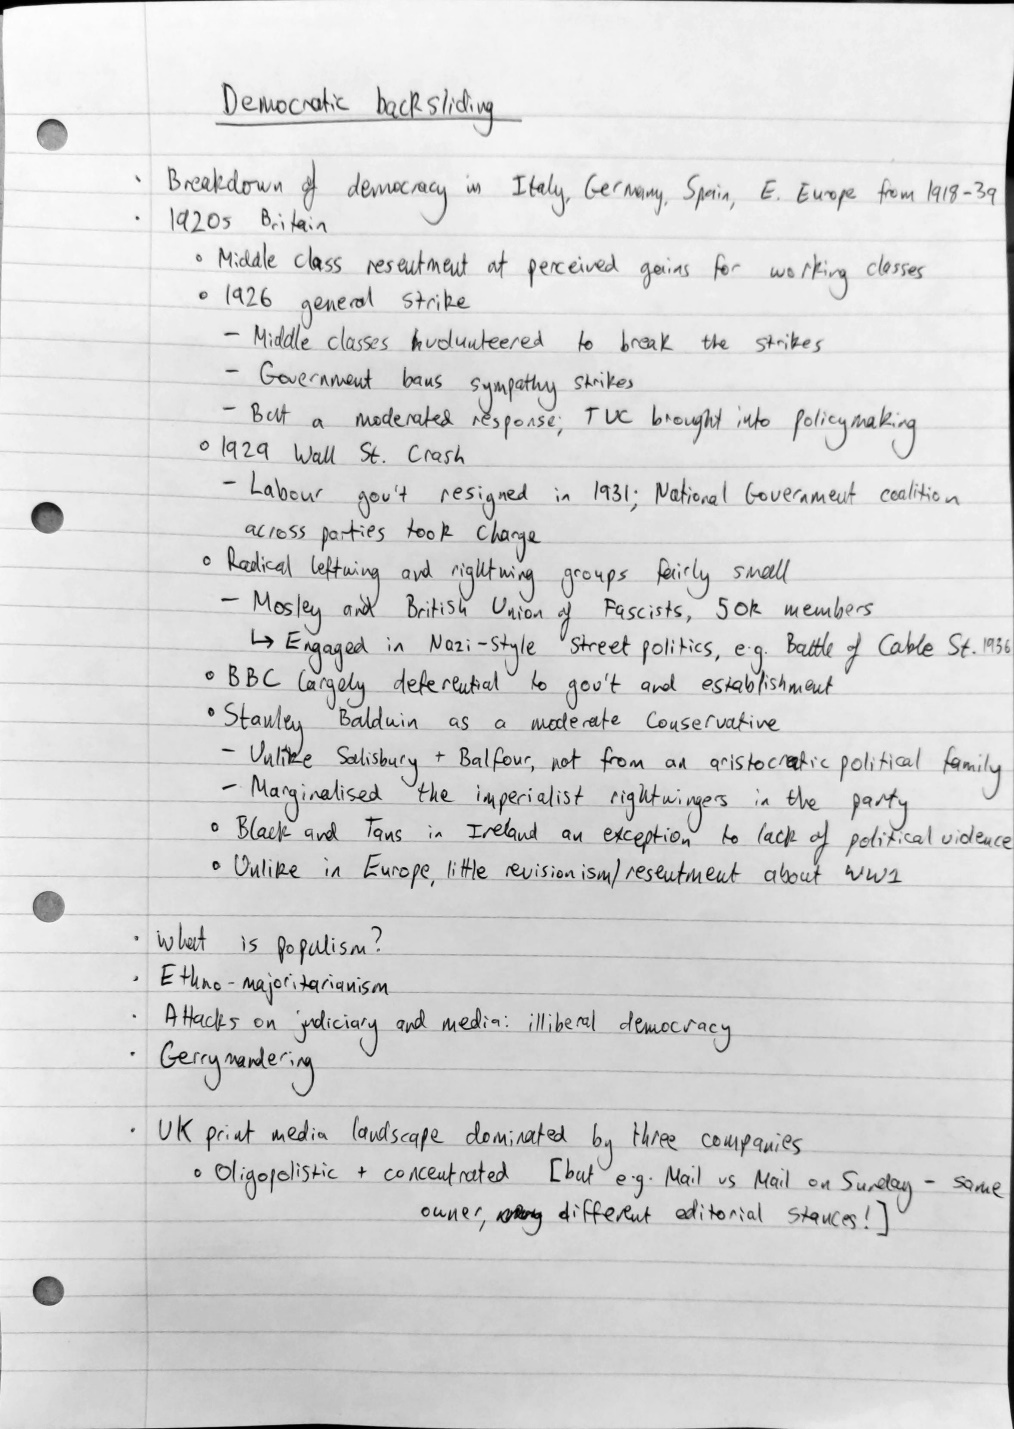 Democratic backsliding
· Breakdown of democracy in Italy, Germany, Spain, E. Europe from 1918-39
· 1920s Britain
∘ Middle class resentment at perceived gains for working classes
∘ 1926 general strike
- Middle classes volunteered to break the strikes
- Government bans sympathy strikes
- But a moderated response; TUC brought into policymaking
∘ 1929 Wall St. Crash
- Labour gov't resigned in 1931; National Government coalition
across parties took charge
∘ Radical leftwing and rightwing groups fairly small
- Mosley and British Union of Fascists, 50k members
↳ Engaged in Nazi-style street politics, e.g. Battle of Cable St. 1936
∘ BBC largely deferential to gov't and establishment
∘ Stanley Baldwin as a moderate Conservative
- Unlike Salisbury + Balfour, not from an aristocratic political family
- Marginalised the imperialist rightwingers in the party
∘ Black and Tans in Ireland an exception to lack of political violence
∘ Unlike in Europe, little revisionism/resentment about WW1
· What is populism?
· Ethno-majoritarianism
· Attacks on judiciary and media: illiberal democracy
· Gerrymandering
· UK print media landscape dominated by three companies
∘ Oligopolistic + concentrated [but e.g. Mail vs Mail on Sunday - same
owner, different editorial stances!]